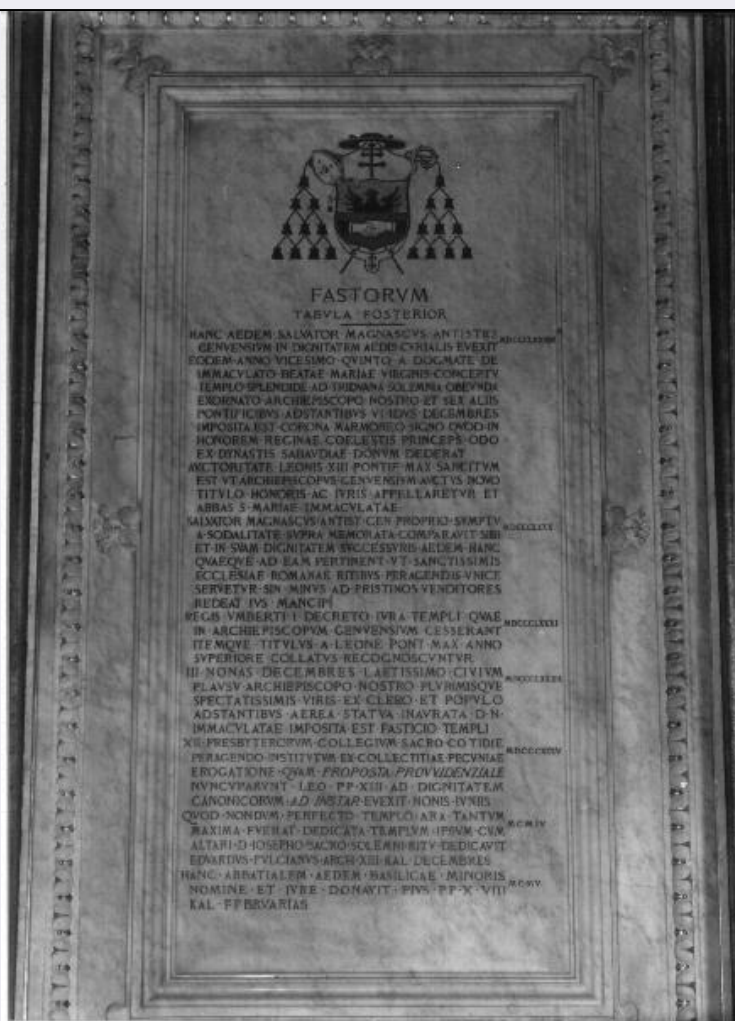 FASTORVM
TABVLA POSTERIOR
HANC AEDEM SALVATOR MAGNASCVS ANTISTES
GENVENSIVM IN DIGNITATEM AEDIS CVRIALIS EVEXIT
EODEM ANNO VICESIMO QVINTO A DOGMATE DE
IMMACVLATO BEATAE MARIAE VIRGINIS CONCEPTV
TEMPLO SPLENDIDE AD TRIDVANA SOLEMNIA OBEVNDA
EXORNATO ARCHIEPISCOPO NOSTRO ET SEX ALIIS
PONTIFICIBVS ADSTANTIBVS VI IDVS DECEMBRES
IMPOSITA EST CORONA MARMOREO SIGNO QVOD IN
HONOREM REGINAE COELESTIS PRINCEPS ODO
EX DYNASTIS SABAVDIAE DONVM DEDERAT
AVCTORITATE LEONIS XIII PONTIF MAX SANCITVM
EST VT ARCHIEPISCOPVS GENVENSIVM AVCTVS NOVO
TITVLO HONORIS AC IVRIS APPELLARETVR ET
ABBAS S MARIAE IMMACVLATAE
SALVATOR MAGNASCVS ANTIST GEN PROPRIO SVMPTV MDCCCLXXX
A SODALITATE SVPRA MEMORATA COMPARAVIT SIBI
ET IN SVAM DIGNITATEM SVCCESSVRIS AEDEM HANC
QVAEQVE AD EAM PERTINENT VT SANCTISSIMIS
ECCLESIAE ROMANAE RITIBVS PERAGENDIS VNICE
SERVETVR SIN MINVS AD PRISTINOS VENDITORES
REDEAT IVS MANCIPI
REGIS VMBERTI I DECRETO IVRA TEMPLI QVAE MDCCCLXXXI
IN ARCHIEPISCOPVM GENVENSIVM CESSERANT
ITEMQVE TITVLVS A LEONE PONT MAX ANNO
SVPERIORE COLLATVS RECOGNOSCVNTVR
III NONAS DECEMBRES LAETISSIMO CIVIVM
PLAVSV ARCHIEPISCOPO NOSTRO PLVRIMISQVE
SPECTATISSIMIS VIRIS EX CLERO ET POPVLO
ADSTANTIBVS AEREA STATVA INAVRATA D N
IMMACVLATAE IMPOSITA EST FASTIGIO TEMPLI
XII PRESBYTERORVM COLLEGIVM SACRO COTIDIE
PERAGENDO INSTITVTVM EX COLLECTITIAE PECVNIAE
EROGATIONE QVAM PROPOSTA PROVVIDENZIALE
NVNCVPARVNT LEO PP XIII AD DIGNITATEM
CANONICORVM AD INSTAR EVEXIT NONIS IVNIIS
QVOD NONDVM PERFECTO TEMPLO ARA TANTVM MCMIV
MAXIMA FVERAT DEDICATA TEMPLVM IPSVM CVM
ALTARI D IOSEPHO SACRO SOLEMNI RITV DEDICAVIT
EDVARDVS PVLCIANVS ARCH XIII KAL DECEMBRES
HANC ABBATIALEM AEDEM BASILICAE MINORIS
NOMINE ET IVRE DONAVIT PIVS PP X VIII
KAL FEBRVARIAS